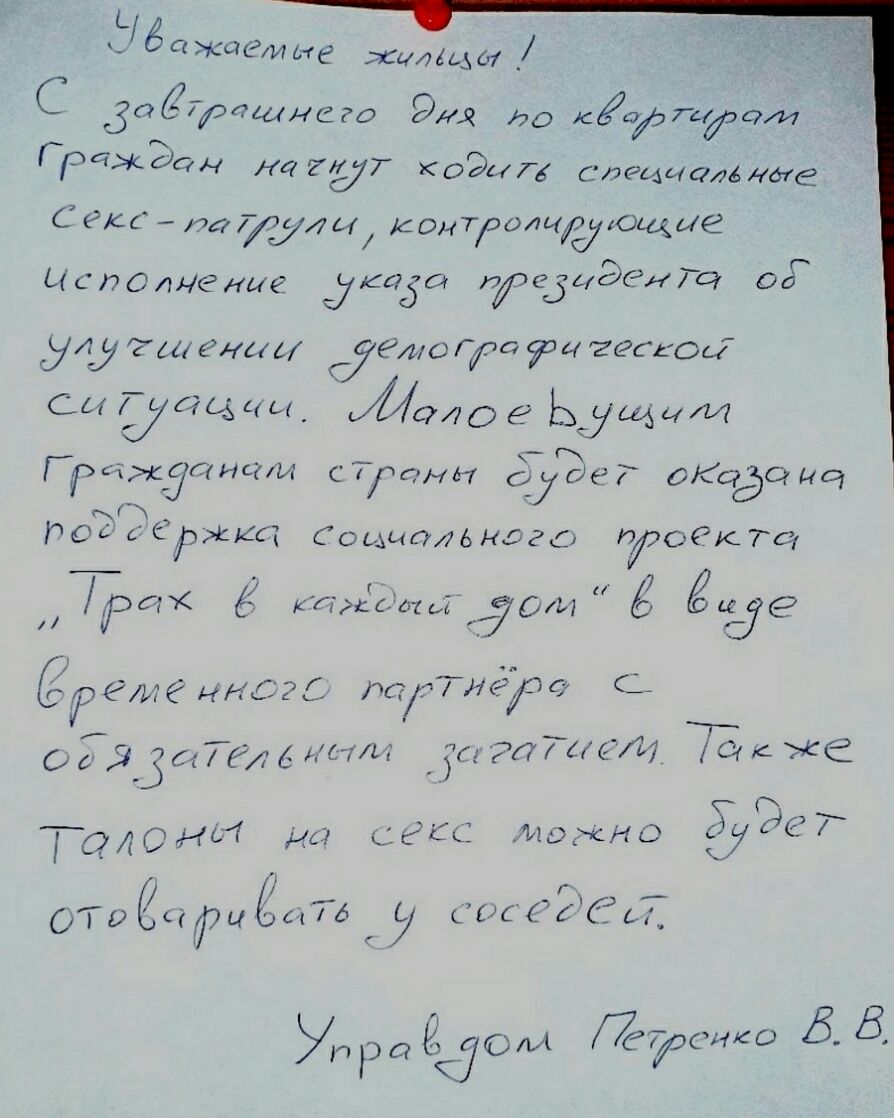 Уважаемые жильцы!
С завтрашнего дня по квартирам
граждан начнут ходить специальные
секс-патрули, контролирующие
исполнение указа президента об
улучшении демографической
ситуации. МалоеЬущим
гражданам страны будет оказана
поддержка социального проекта
„Трах в каждый дом“ в виде
временного партнёра с
обязательным зачатием. Также
талоны на секс можно будет
отоваривать у соседей.
Управдом Петренко В. В.